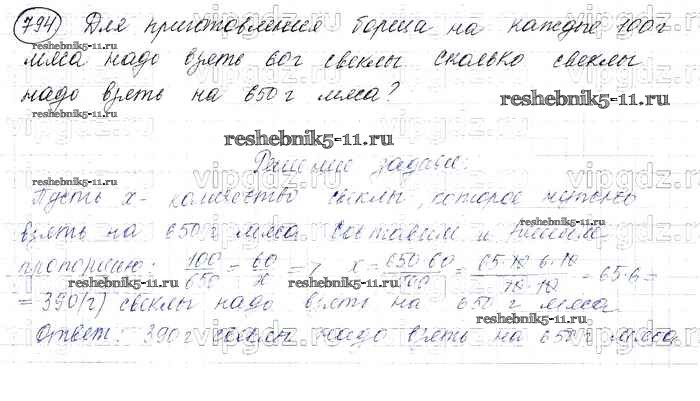 794) Для приготовления борща на каждые 100г
мяса надо взять 60г свеклы сколько свеклы
надо взять на 650г мяса?
reshebnik5-11.ru
reshebnik5-11.ru
reshebnik5-11.ru
Решение задачи:
reshebnik5-11.ru
Пусть x - количество свеклы, которое
взять на 650г мяса Составим и решим
reshebnik5-11.ru
пропорцию: 100/650 = 60/x => x = 650·60/100 = 65·10·6·10/10·10 = 65·6=
= 390(г) свеклы надо взять на 650г мяса
reshebnik5-11.ru
reshebnik5-11.ru
Ответ: 390г свеклы надо взять на 650г мяса.
vipgdz.ru